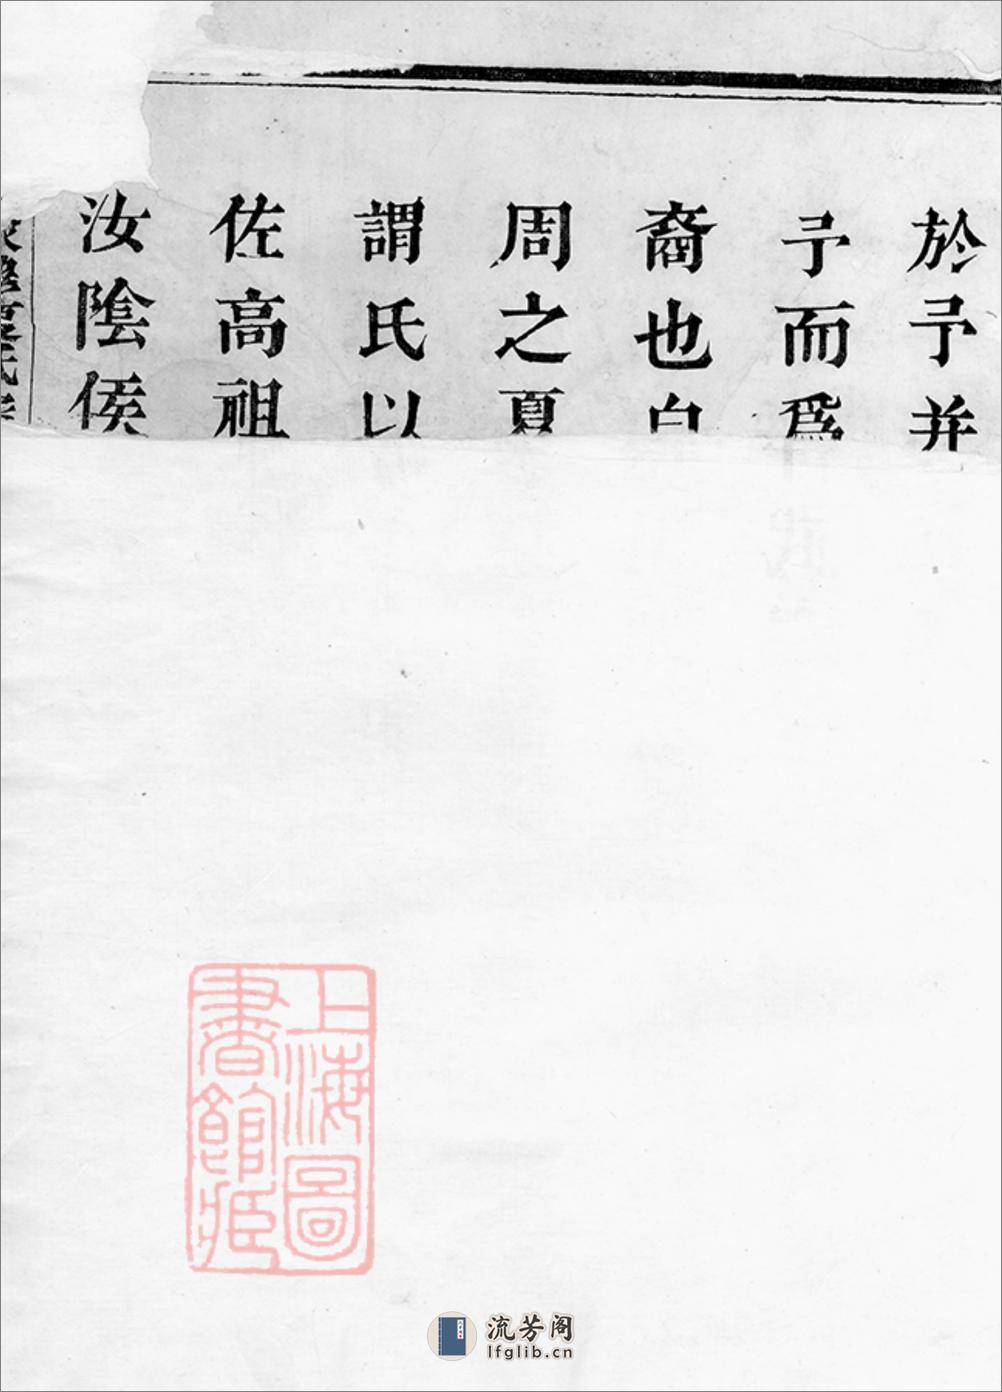 於予并
予而爲
裔也
周之夏
謂氏以
佐高祖
汝陰侯
夏氏
上海圖
書館藏
流芳阁
lfglib.cn